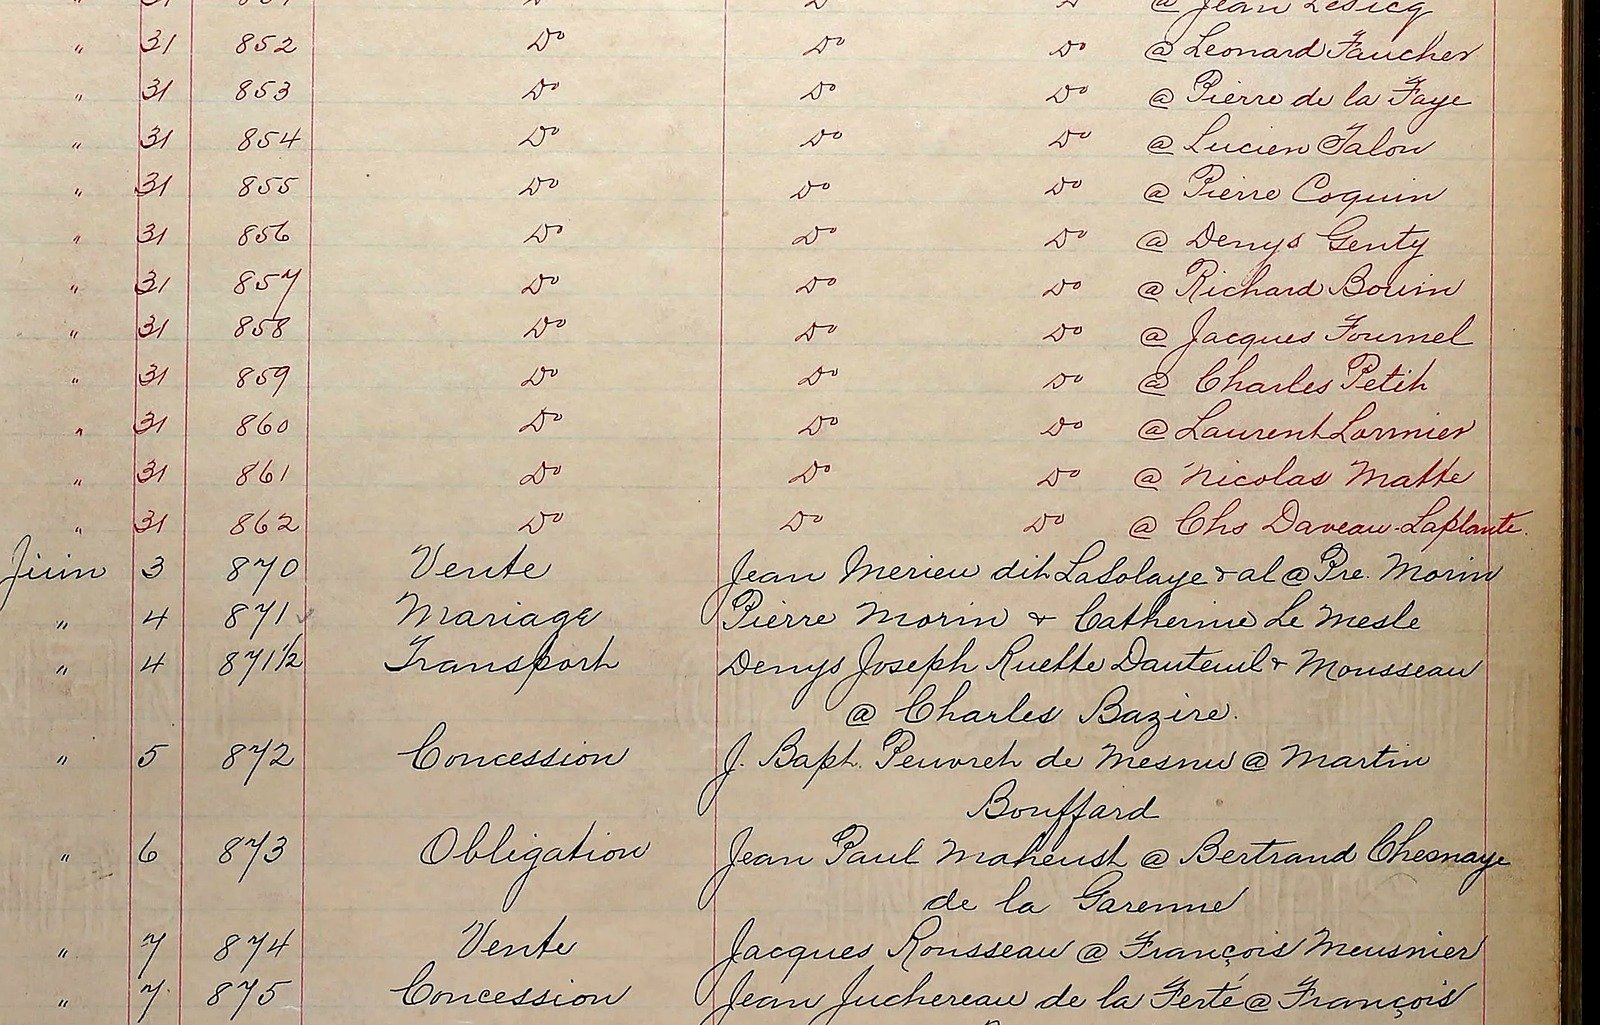 " 31 851 Do Do Do @ Jean Lesicq
" 31 852 Do Do Do @ Leonard Faucher
" 31 853 Do Do Do @ Pierre de la Faye
" 31 854 Do Do Do @ Lucien Talon
" 31 855 Do Do Do @ Pierre Coquin
" 31 856 Do Do Do @ Denys Genty
" 31 857 Do Do Do @ Richard Bouin
" 31 858 Do Do Do @ Jacques Fournel
" 31 859 Do Do Do @ Charles Petit
" 31 860 Do Do Do @ Laurent Lormier
" 31 861 Do Do Do @ Nicolas Matte
" 31 862 Do Do Do @ Chs Daveau-Laplante.
Juin 3 870 Vente Jean Merieu dit LaSolaye & al @ Pre. Morin
" 4 871 Mariage Pierre Morin & Catherine Le Mesle
" 4 871 1/2 Transport Denys Joseph Ruette Dauteuil & Mousseau
@ Charles Bazire.
" 5 872 Concession J. Bapt. Peuvret de Mesnu @ Martin
Bouffard
" 6 873 Obligation Jean Paul Maheust @ Bertrand Chesnaye
de la Garenne
" 7 874 Vente Jacques Rousseau @ François Meusnier
" 7 875 Concession Jean Juchereau de la Ferté @ François